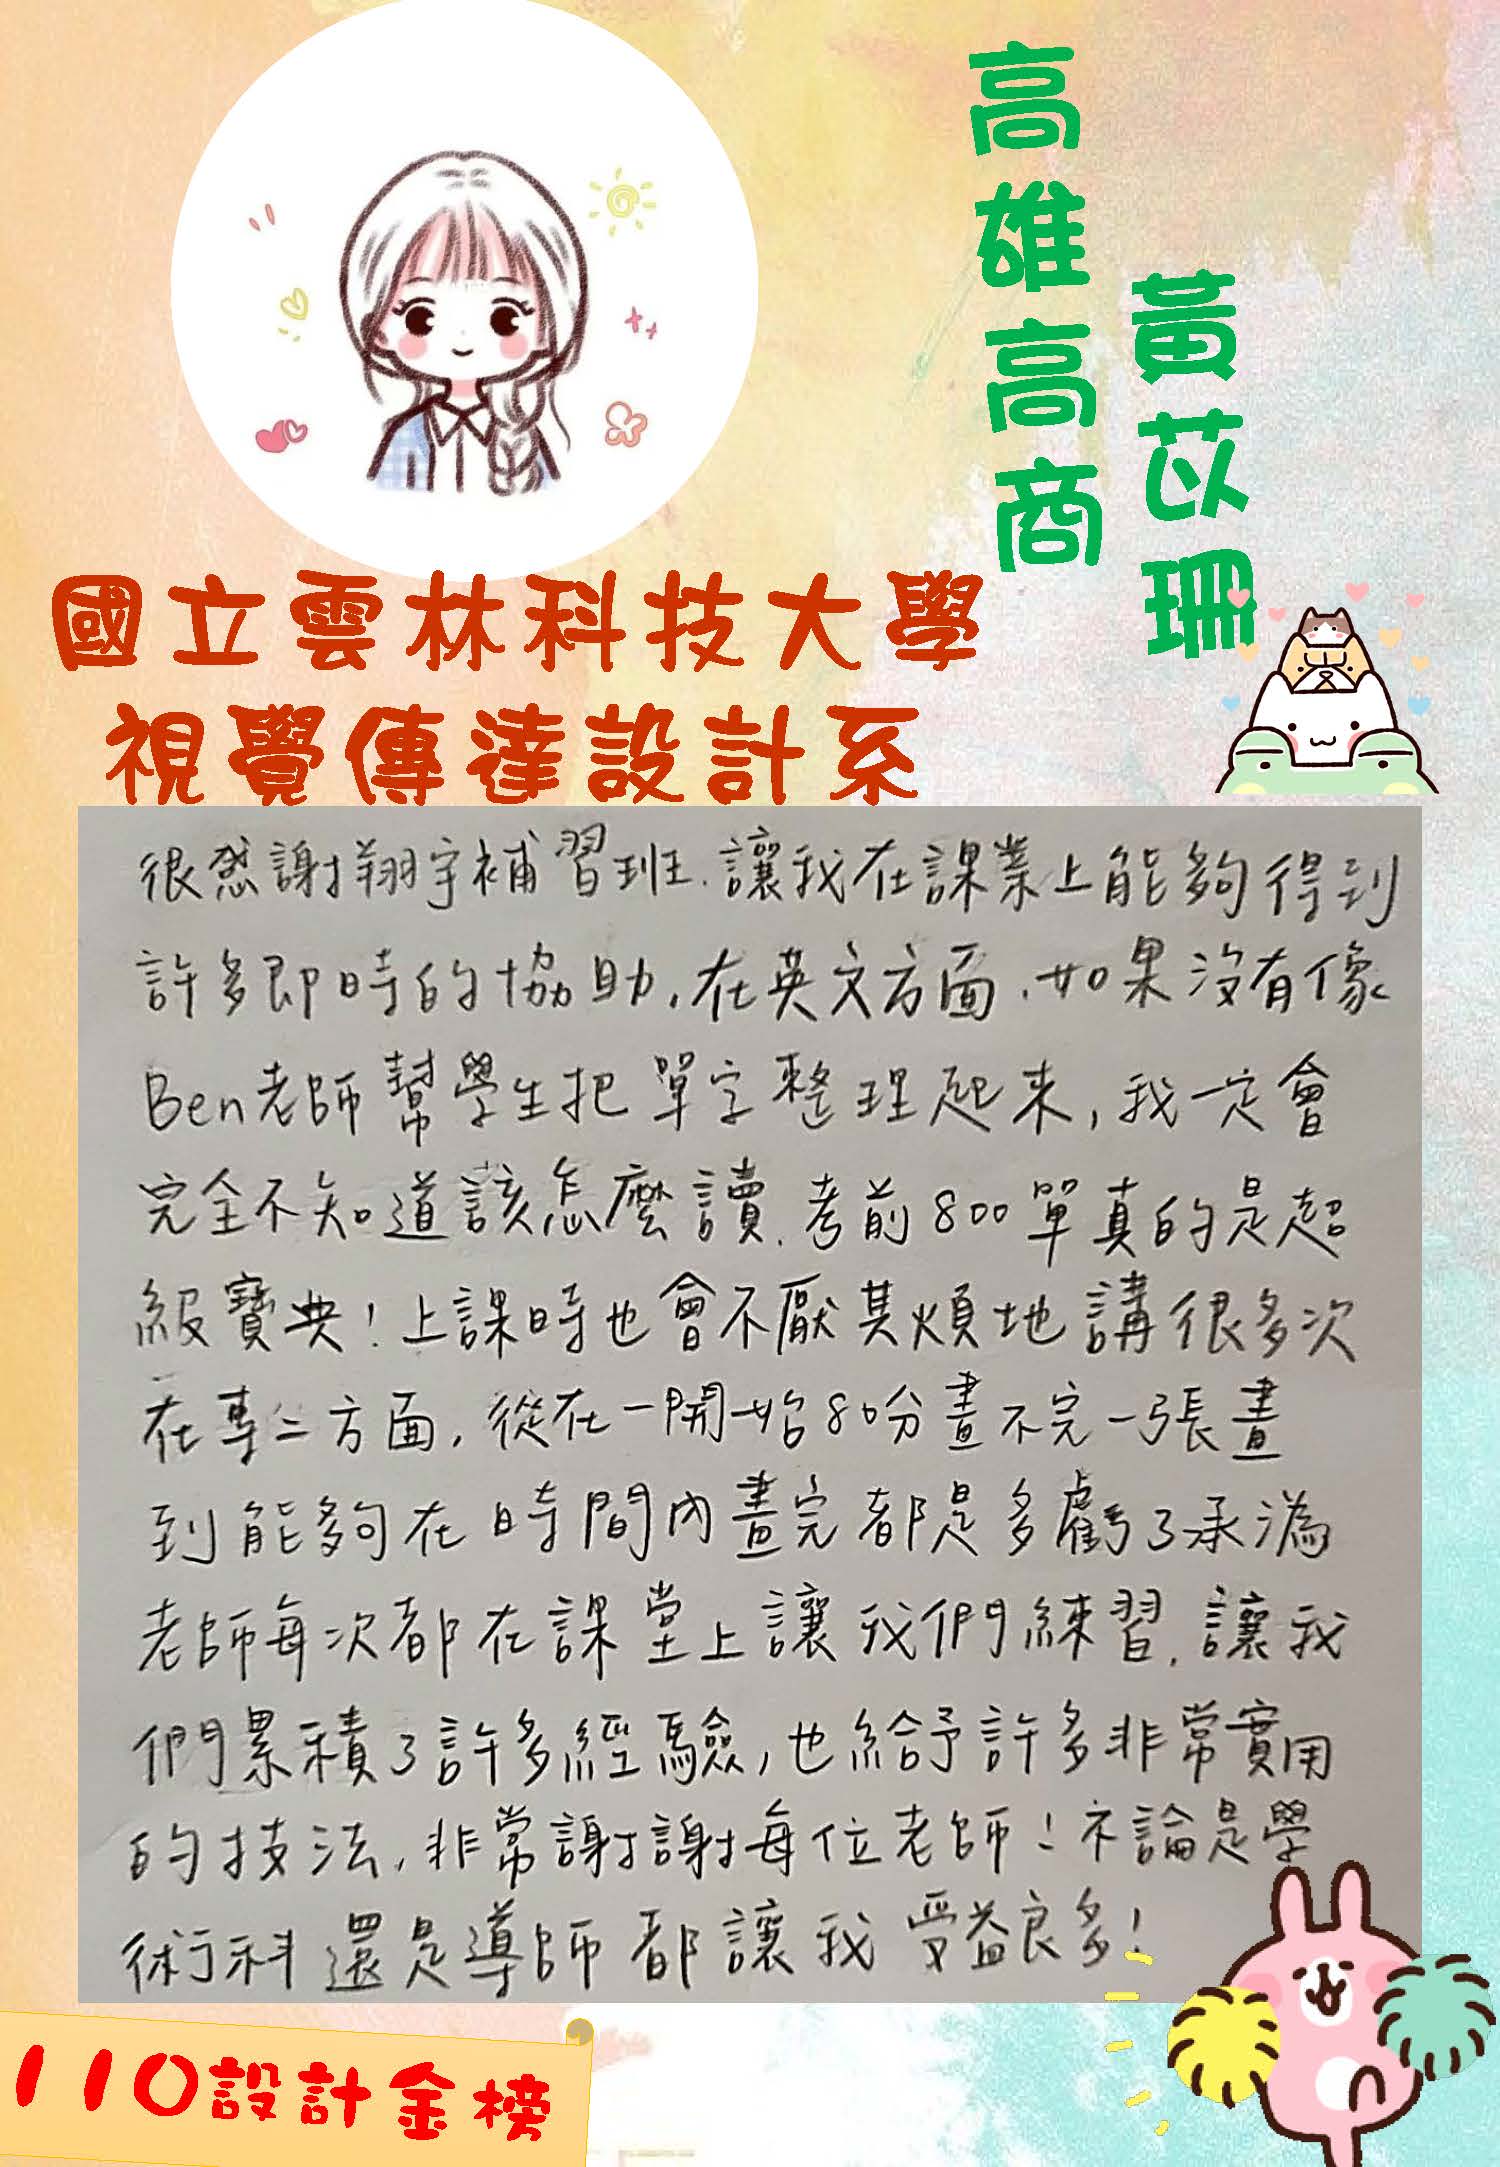 高雄高商
黃苡珊
國立雲林科技大學
視覺傳達設計系
很感謝翔宇補習班,讓我在課業上能夠得到
許多即時的協助,在英文方面,如果沒有像
Ben老師幫學生把單字整理起來,我一定會
完全不知道該怎麼讀,考前800單真的是超
級寶典!上課時也會不厭其煩地講很多次
在專二方面,從在一開始80分畫不完一張畫
到能夠在時間內畫完都是多虧了承溈
老師每次都在課堂上讓我們練習,讓我
們累積了許多經驗,也給予許多非常實用
的技法,非常謝謝每位老師!不論是學
術科還是導師都讓我受益良多!
110設計金榜